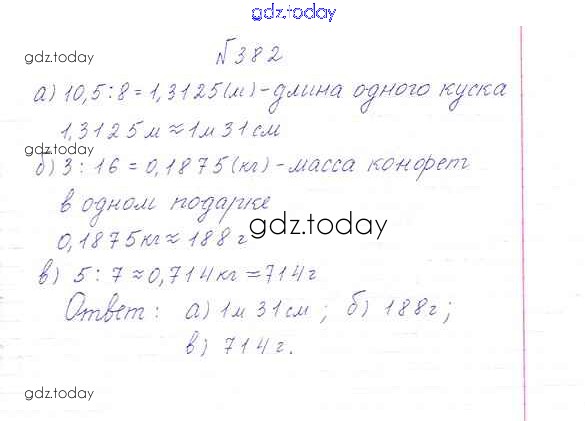 gdz.today
№382
gdz.today
а) 10,5:8=1,3125(м)-длина одного куска
1,3125м≈1м31см
gdz.today
б) 3:16=0,1875(кг)-масса конфрет
в одном подарке
gdz.today
0,1875кг≈188г
в) 5:7≈0,714кг=714г
gdz.today
Ответ: а) 1м 31см; б) 188г;
в) 714г.
gdz.today